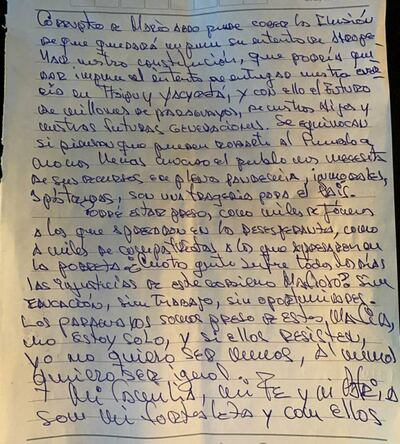 Corrupto de Mario Abdo puede correr la ilusión
de que quedará impune su intento de atrope-
llar nuestra constitución, que podría que-
dar impune el intento de entregar nuestra ener-
gía en Itaipu y Yacyreta, y con ello el futuro
de millones de paraguayos, nuestros hijos y
nuestras futuras generaciones. Se equivocan
si piensan que pueden robarle al Pueblo a
manos llenas cuando el pueblo más necesita
de sus recursos en plena pandemia, inmorales,
son una tragedia para el País.
Podré estar preso, como miles de jóvenes
a los que apresaron en la desesperanza, como
a miles de compatriotas a los que apresaron en
la pobreza. ¿Cuánta gente sufre todos los días
las injusticias de este gobierno Mafioso? Sin
Educación, sin trabajo, sin oportunidades.
Los paraguayos somos preso de estos,
no estoy solo, y si ellos resisten,
yo no quiero ser menos, al menos
quiero ser igual.
Mi familia, mi Fe y mi
son mi fortaleza y con ellos